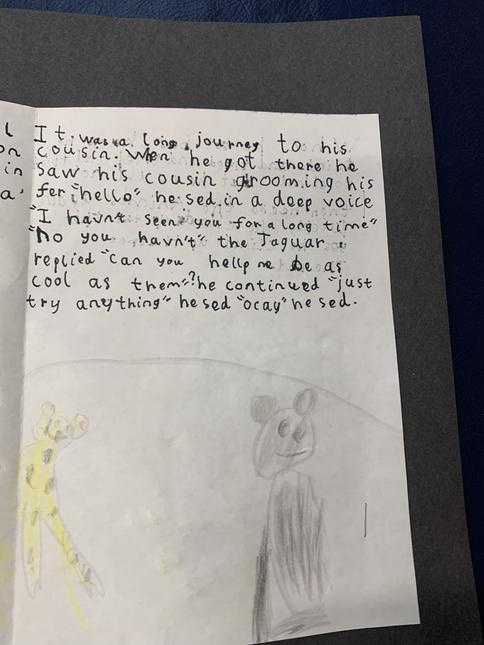 l
on
in
a'
It was a long journey to his
cousin. Wen he got there he
saw his cousin grooming his
fer "hello" he sed in a deep voice
"I havnt seen you for a long time"
"No you havn't" the Jaguar
replied "can you hellp me be as
cool as them"? he continued "just
try anything" he sed "ocay" he sed.